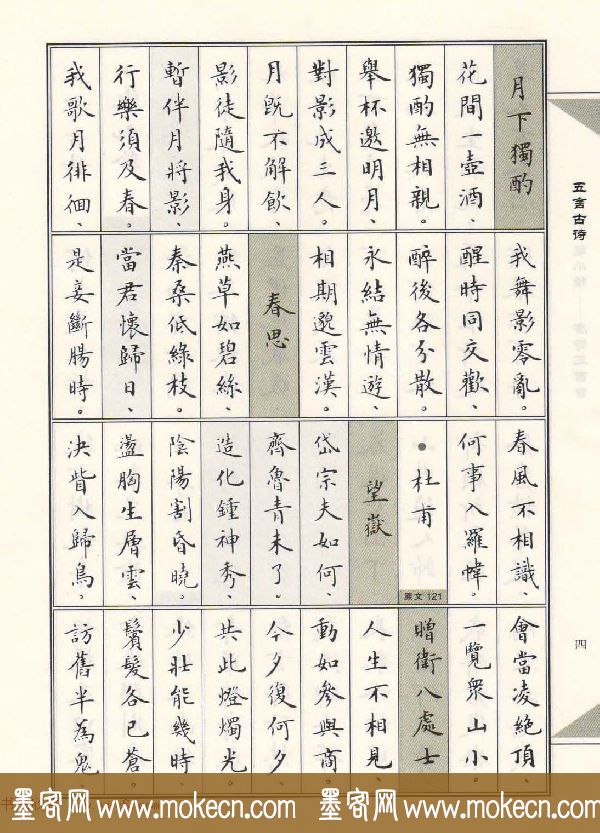 月下獨酌
花間一壺酒、
獨酌無相親。
舉杯邀明月、
對影成三人。
月既不解飲、
影徒隨我身。
暫伴月將影、
行樂須及春。
我歌月徘徊、
我舞影零亂。
醒時同交歡、
醉後各分散。
永結無情遊、
相期邈雲漢。
春思
燕草如碧絲、
秦桑低綠枝。
當君懷歸日、
是妾斷腸時。
春風不相識、
何事入羅幃。
•杜甫
原文 121
望嶽
岱宗夫如何、
齊魯青未了。
造化鍾神秀、
陰陽割昏曉。
盪胸生層雲、
決眥入歸鳥。
會當凌絕頂、
一覽眾山小。
贈衛八處士
人生不相見、
動如參與商。
今夕復何夕、
共此燈燭光。
少壯能幾時、
鬢髮各已蒼。
訪舊半為鬼
五言古诗
四
墨客网 www.mokecn.com 墨客网 www.mokecn.com